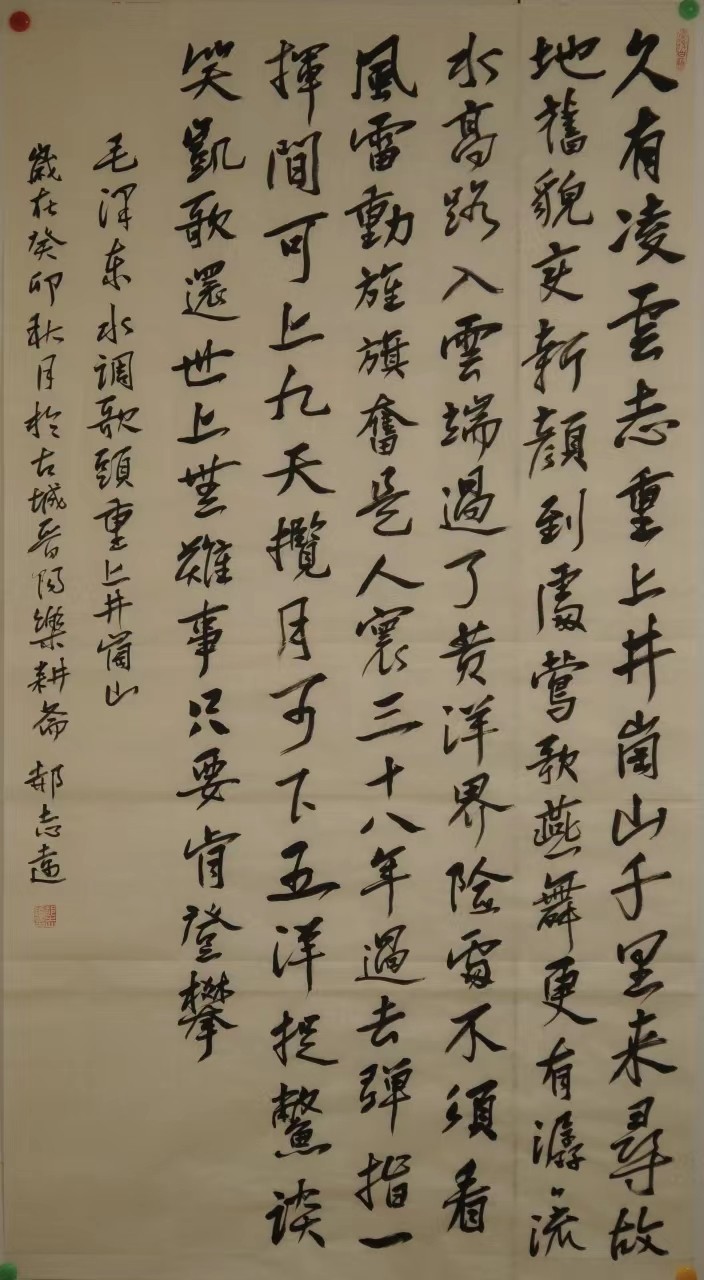 久有凌雲志重上井崗山千里来尋故
地舊貌变新顔到處鶯歌燕舞更有潺々流
水高路入雲端過了黄洋界险處不須看
風雷動旌旗奮是人寰三十八年過去弹指一
揮間可上九天攬月可下五洋捉鱉談
笑凱歌還世上無難事只要肯登攀
毛泽东水调歌頭重上井崗山
歲在癸卯秋月於古城晋阳樂耕斋 郝志